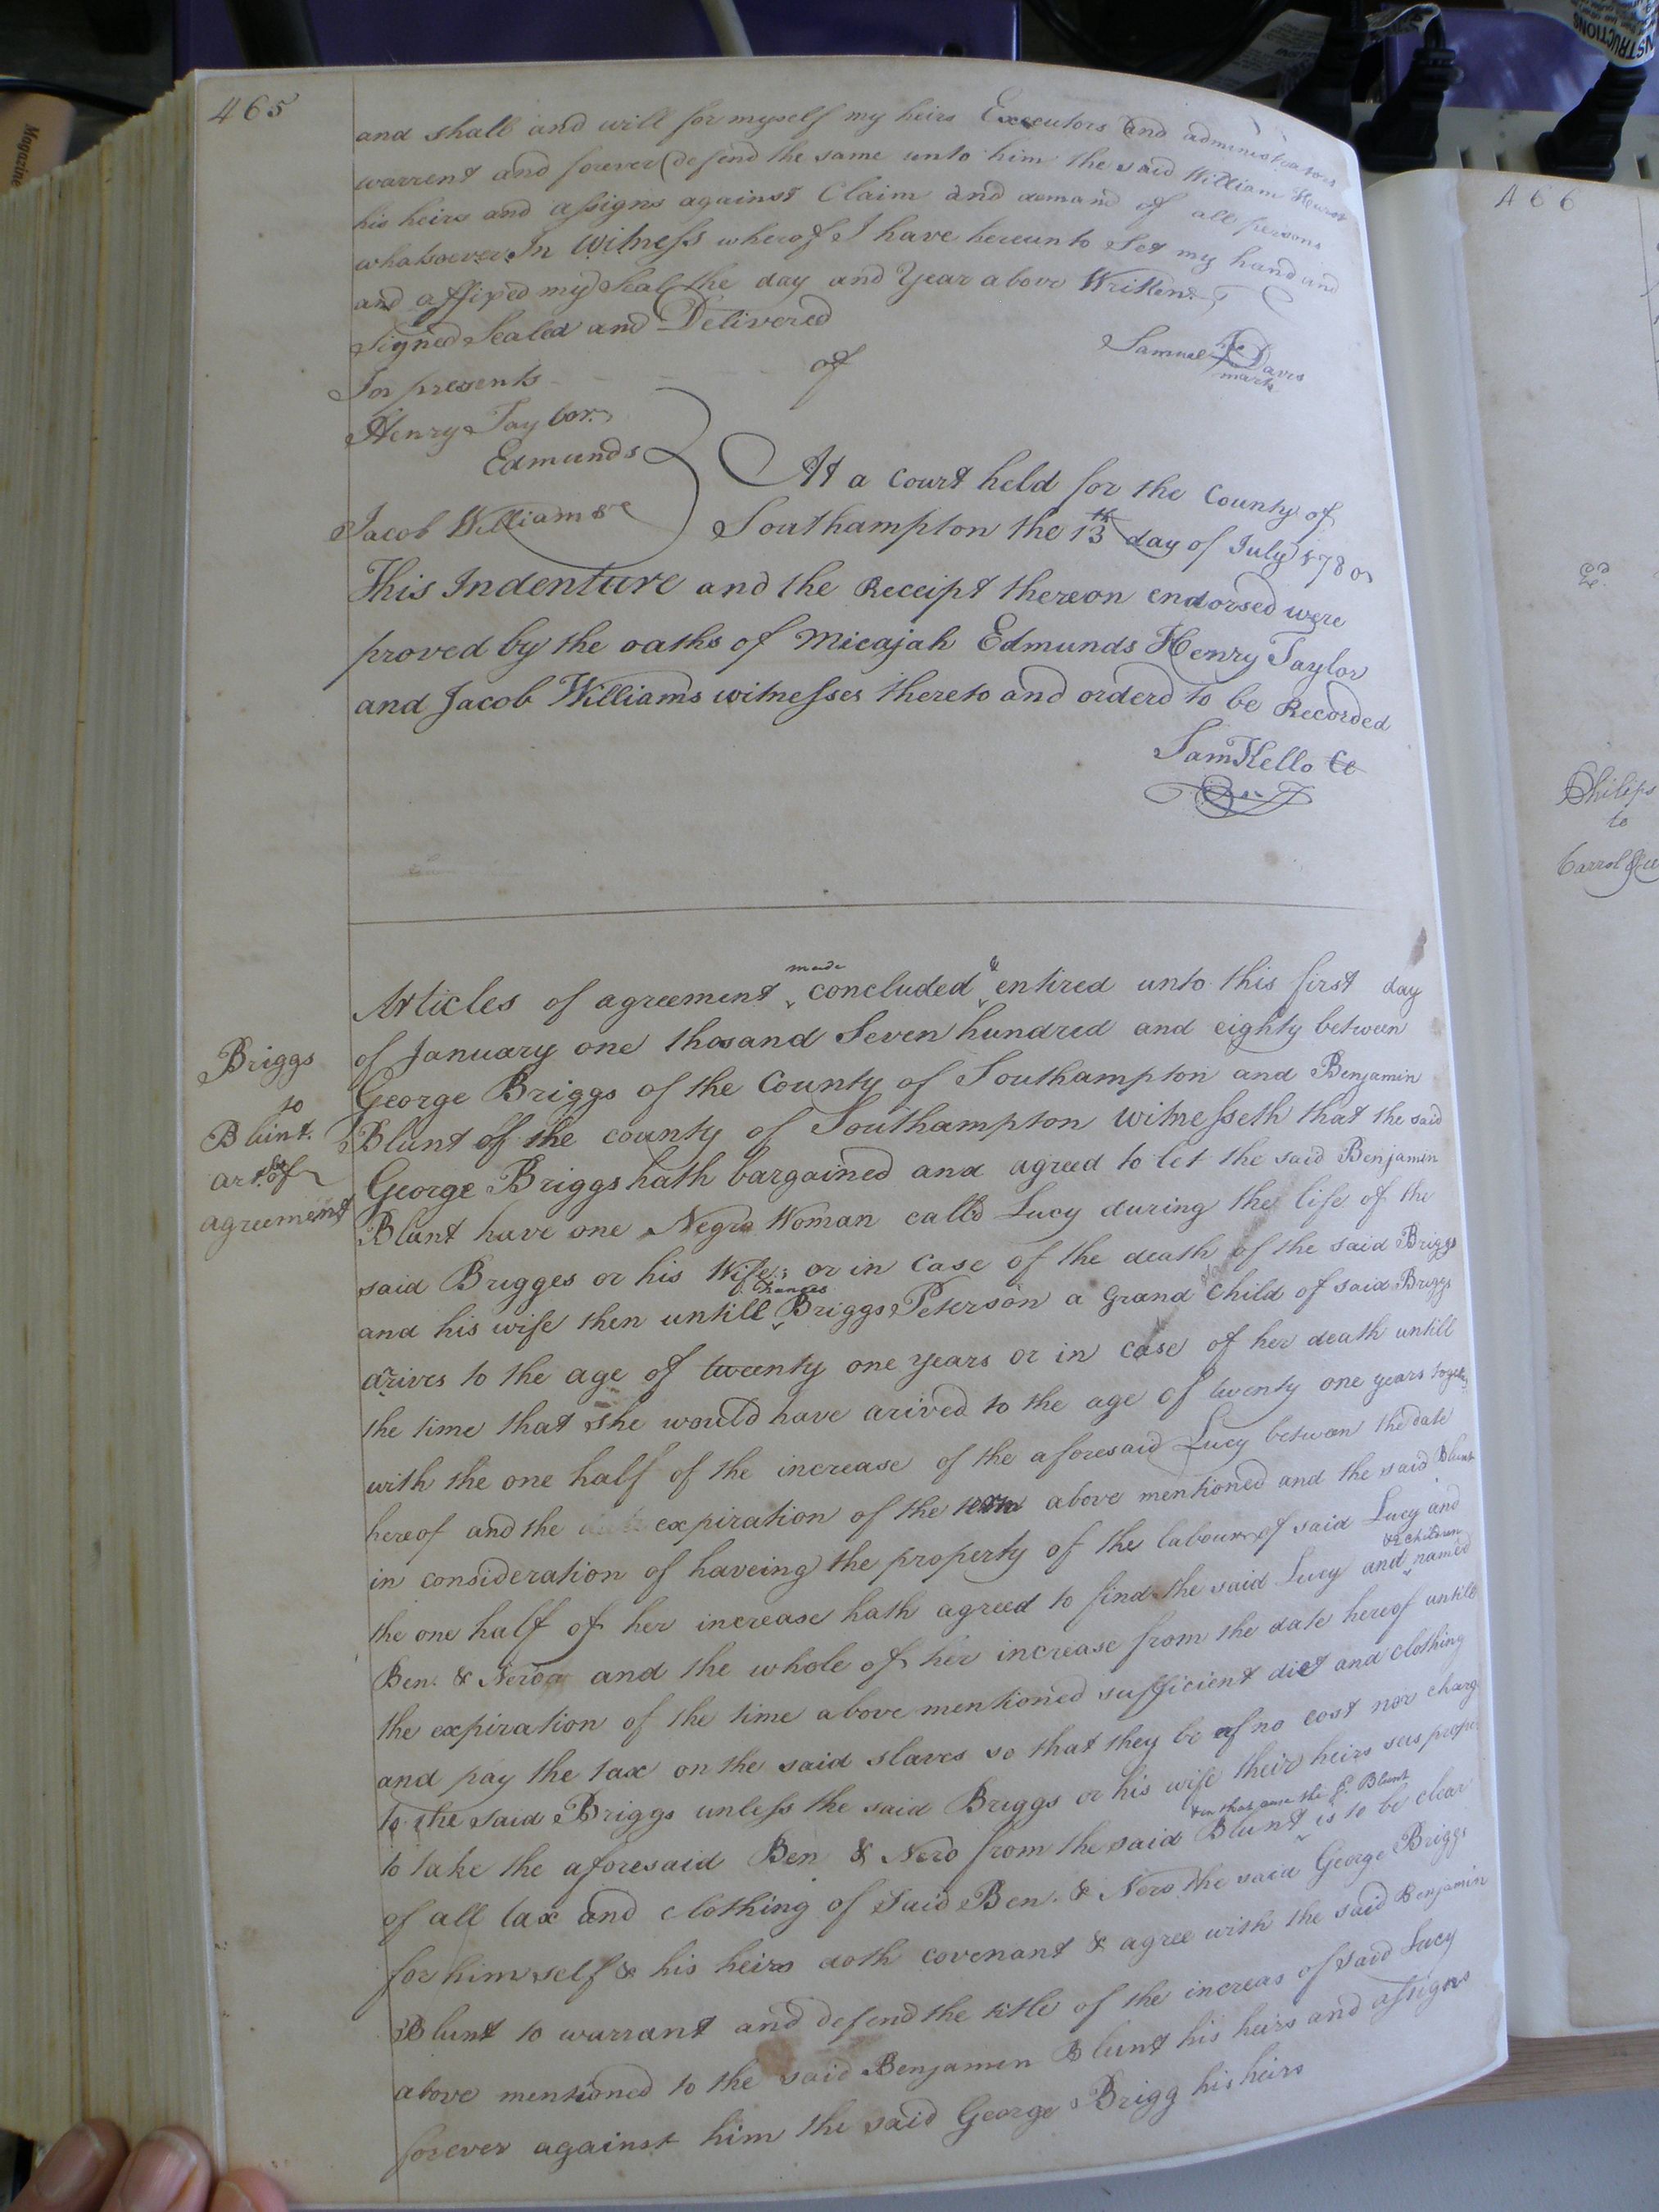 465
and shall and will for myself my heirs Executors and administrators
warrent and forever defend the same unto him the said William
his heirs and assigns against Claim and demand of all persons
whatsoever In Witness wherof I have hereunto Set my hand and
and affixed my Seal the day and Year above Written
Signed Sealed and Delivered
In presents of
Samuel his Davis
mark
Henry Taylor
Edmunds
Jacob Williams
At a court held for the County of
Southampton the 13th day of July 1780
This Indenture and the Receipt thereon endorsed were
proved by the oaths of Micajah Edmunds Henry Taylor
and Jacob Williams witnesses thereto and orderd to be Recorded
Sam Kello Ce
Briggs
to
Blunt.
arts. of
agreement
Articles of agreement made concluded & entired unto this first day
of January one thosand Seven hundred and eighty between
George Briggs of the County of Southampton and Benjamin
Blunt of the county of Southampton witnesseth that the said
George Briggs hath bargained and agreed to let the said Benjamin
Blunt have one Negro Woman calld Lucy during the life of the
said Brigges or his Wife; or in Case of the death of the said Briggs
and his wife then untill Frances Briggs Peterson a Grand Child of said Briggs
arives to the age of twenty one years or in case of her death untill
the time that she would have arived to the age of twenty one years together
with the one half of the increase of the aforesaid Lucy between the date
hereof and the expiration of the term above mentioned and the said Blunt
in consideration of haveing the property of the labour of said Lucy and
the one half of her increase hath agreed to find the said Lucy and 2 children named
Ben. & Nero and the whole of her increase from the date hereof untill
the expiration of the time above mentioned sufficient diet and clothing
and pay the tax on the said slaves so that they be of no cost nor charg
to the said Briggs unless the said Briggs or his wife their heirs sees proper
to take the aforesaid Ben & Nero from the said Blunt & in that case the sd. Blunt is to be clear
of all tax and clothing of Said Ben. & Nero the said George Briggs
for himself & his heirs doth covenant & agree with the said Benjamin
Blunt to warrant and defend the title of the increas of said Lucy
above mentioned to the said Benjamin Blunt his heirs and assigns
forever against him the said George Brigg his heirs
466
Philips
to
Magazine
INSTRUCTIONS